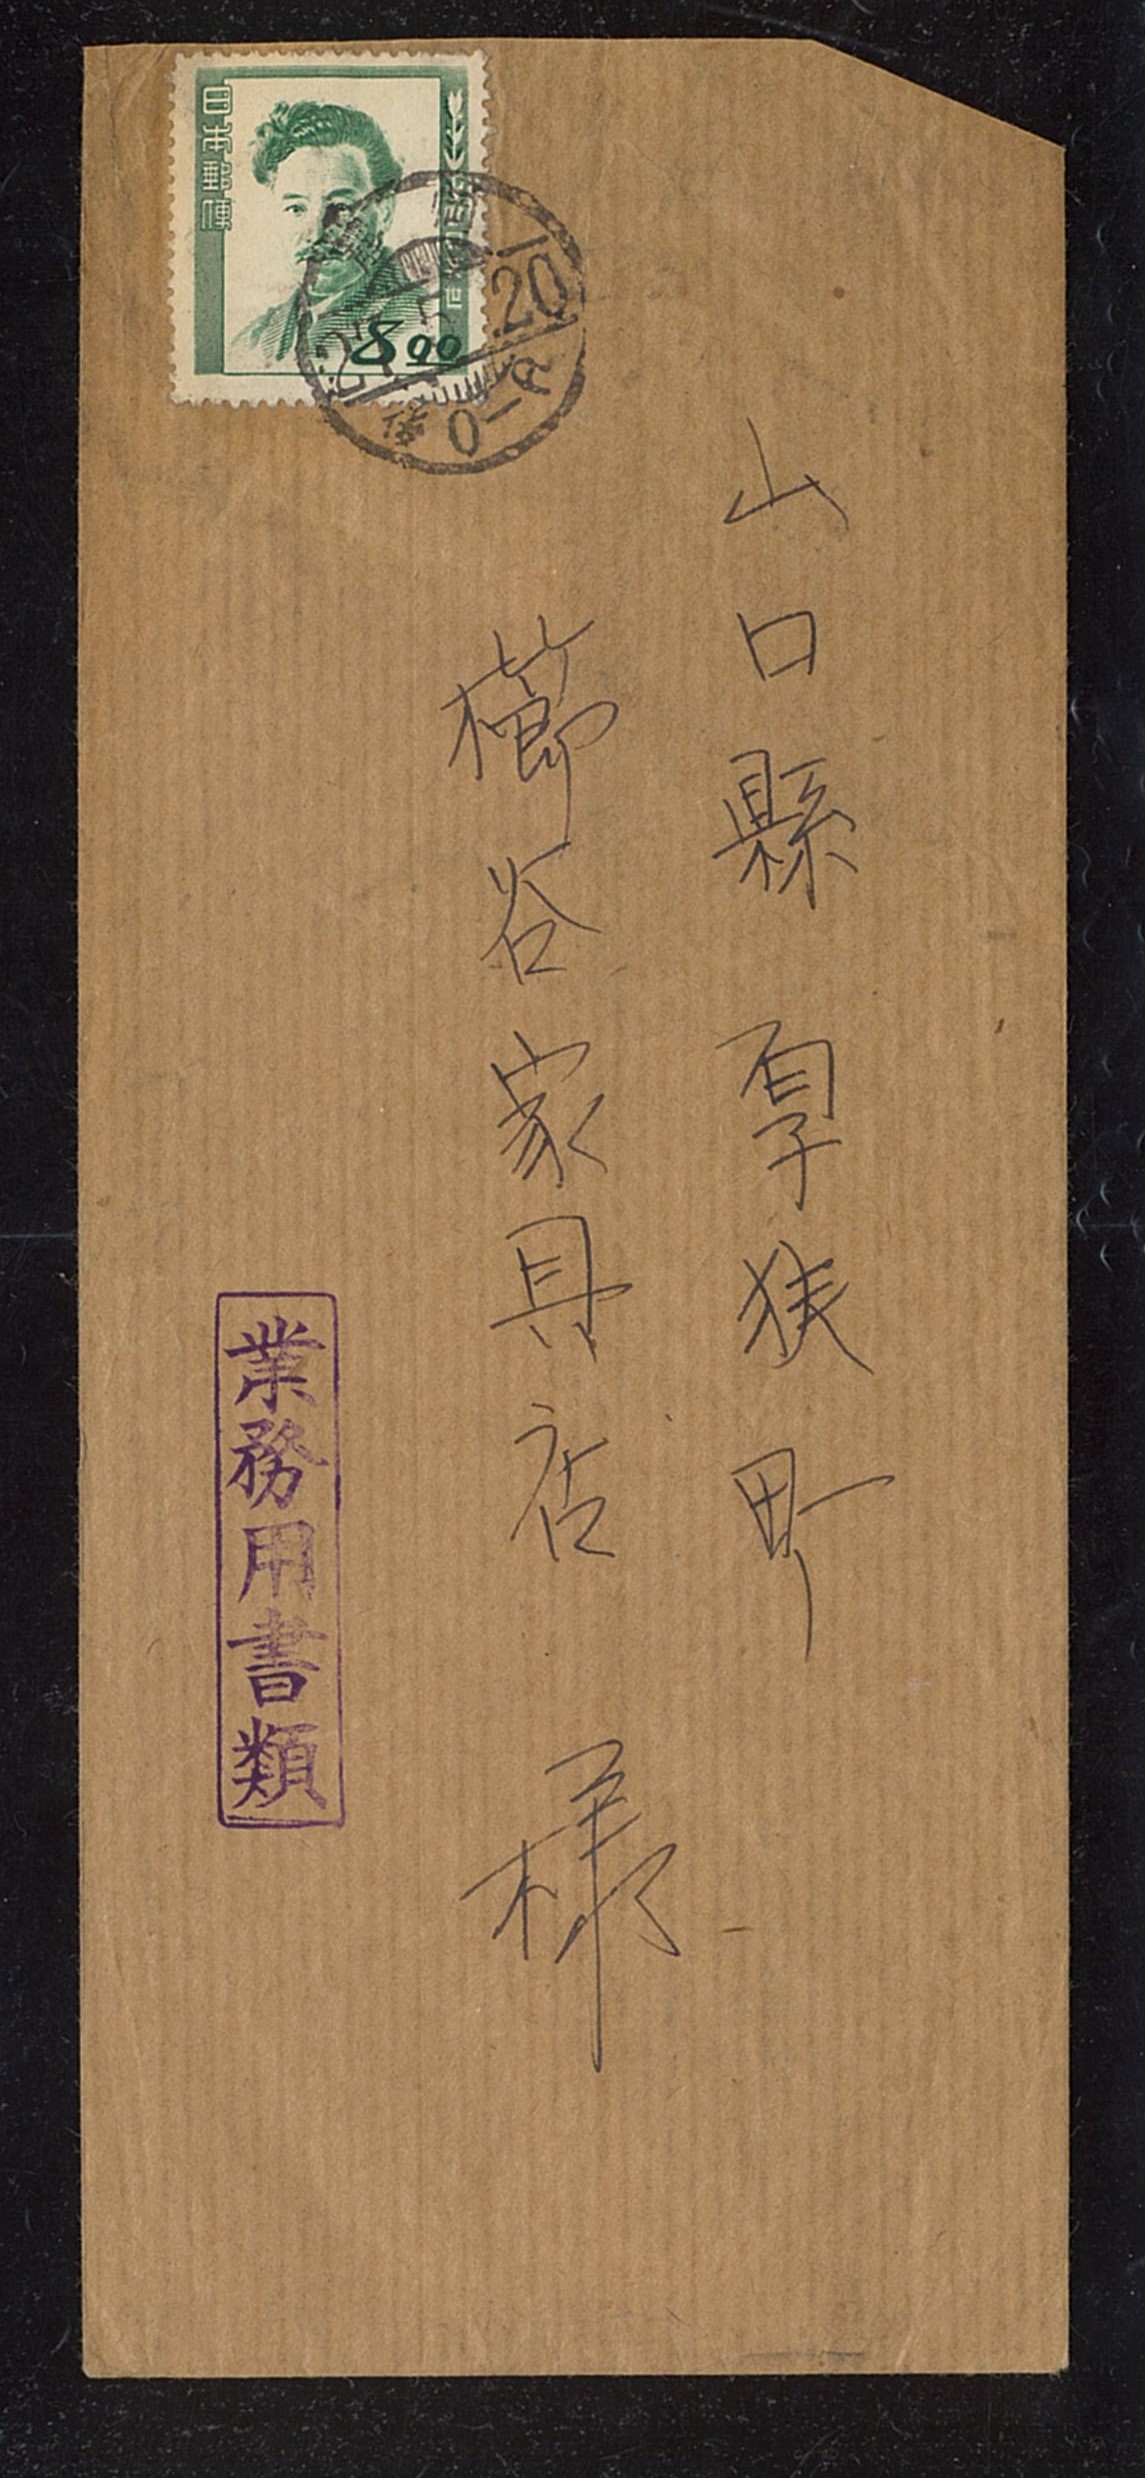 山口縣 厚狭町
櫛谷家具店 様
業務用書類
日本郵便
8.00
20
0-